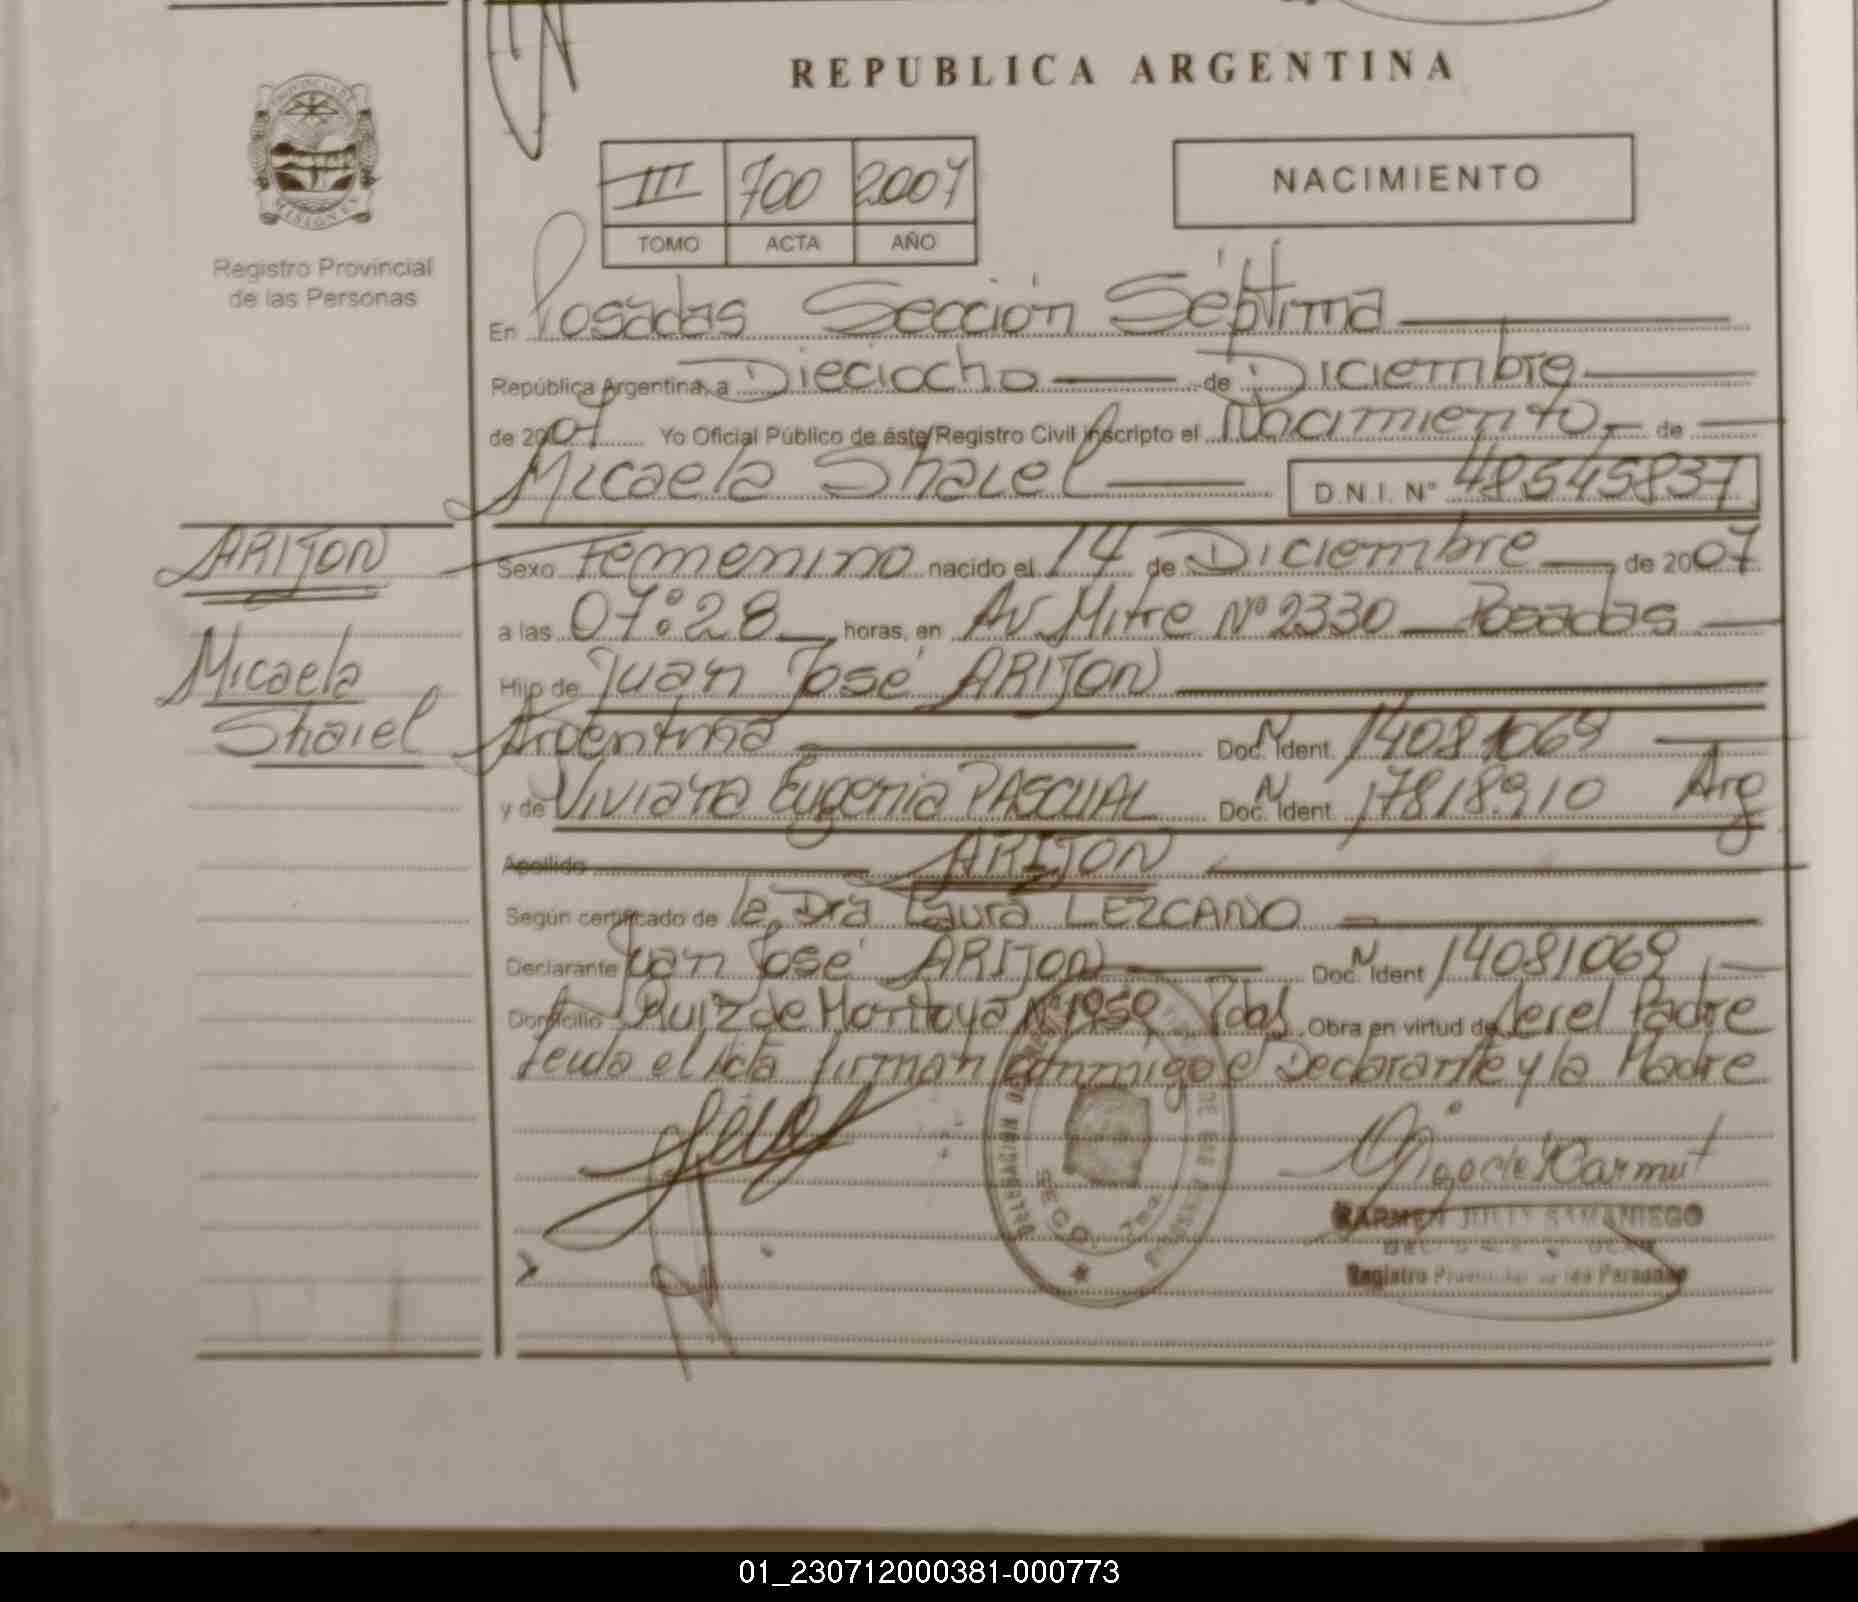 PROVINCIA DE
MISIONES
Registro Provincial
de las Personas
REPUBLICA ARGENTINA
III 700 2007
TOMO ACTA AÑO
NACIMIENTO
En Posadas Sección Séptima
República Argentina, a Dieciocho de Diciembre
de 2007 Yo Oficial Público de éste Registro Civil inscripto el Nacimiento de
Micaela Shaiel D.N.I. Nº 48545837
ARIJON
Micaela
Shaiel
Sexo Femenino nacido el 14 de Diciembre de 2007
a las 07:28 horas, en Av Mitre Nº 2330 Posadas
Hijo de Juan José ARIJON
Argentina Doc. N Ident. 14081069
y de Viviana Eugenia PASCUAL Doc. N Ident. 17818910 Arg
Apellido ARIJON
Según certificado de la Dra Laura LEZCANO
Declarante Juan José ARIJON Doc. N Ident 14081069
Domicilio Ruiz de Montoya Nº 1950 Pdas Obra en virtud de ser el Padre
Leida el Acta firman conmigo el Declarante y la Madre
SECC. 7ma
CARMEN JULIA SAMANIEGO
Registro Provincial de las Personas
01_230712000381-000773